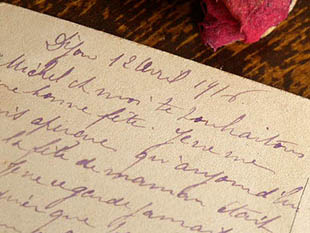 Dijon 12 avril 1916.
Michel et moi te souhaitons
une bonne fête. Je ne me
suis aperçue qu'aujourd'hui
la fête de maman était
Je ne regarde jamais
que